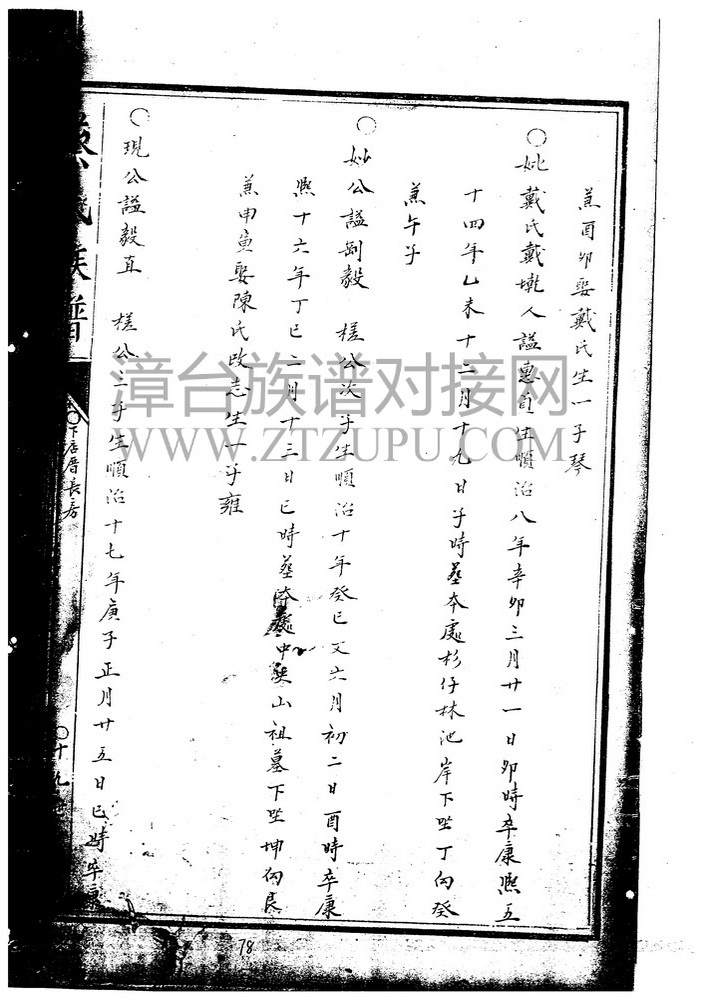 兼酉卯娶戴氏生一子琴
〇妣戴氏戴墘人謚惠自生順治八年辛卯三月廿一日卯時卒康熙五
十四年乙未十二月十九日子時葬本處杉仔林池岸下坐丁向癸
兼午子
〇妙公謚剛毅 槎公次子生順治十年癸巳又六月初二日酉時卒康
熙十六年丁巳二月十三日巳時葬 處中 山祖墓下坐坤向艮
兼申寅娶陳氏改志生一子雍
〇現公謚毅直 槎公三子生順治十七年庚子正月廿五日巳時卒康
族譜
〇下店厝長房
〇十九
78
漳台族谱对接网
WWW.ZTZUPU.COM